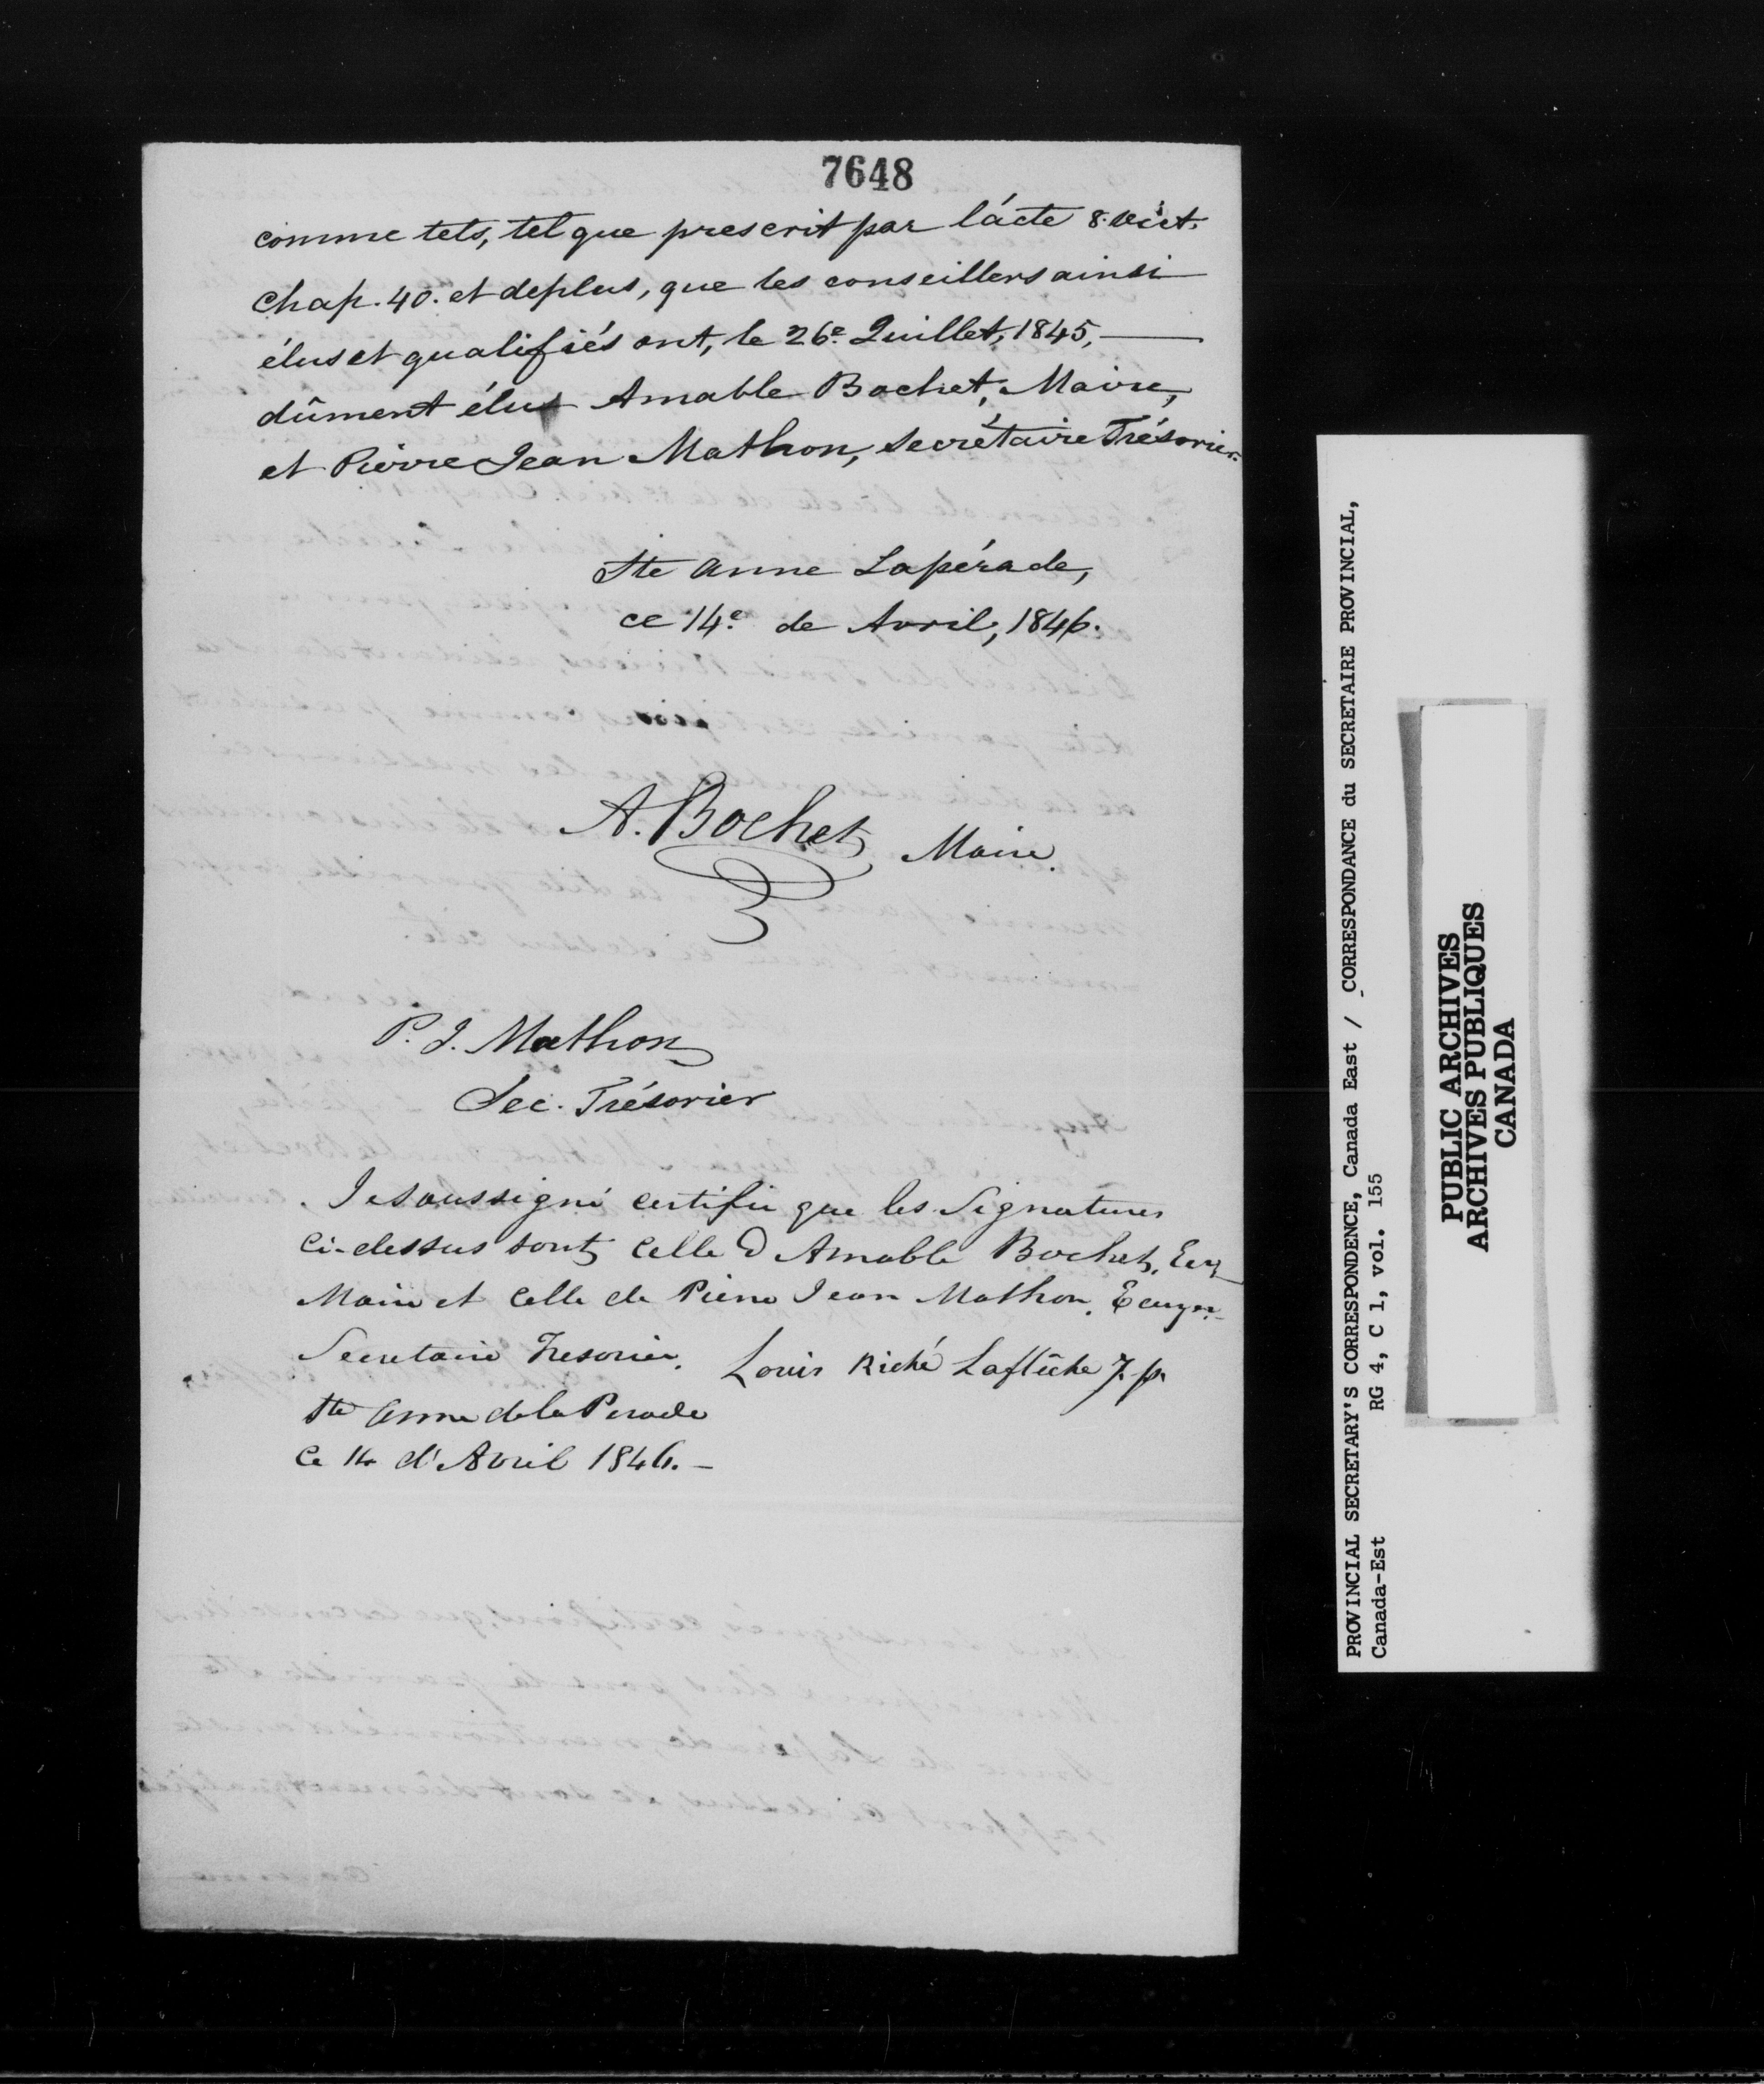 7648
comme tels, tel que prescrit par l'acte 8. Vict.
Chap. 40. et deplus, que les conseillers ainsi
élus et qualifiés ont, le 26e. Juillet, 1845,
dûment élus Amable Bochet, Maire,
et Pierre Jean Mathon, Secrétaire Trésorier.
Ste Anne Lapérade,
ce 14e. de Avril, 1846.
A. Bochet Maire.
P. J. Mathon
Sec. Trésorier
Je soussigné certifie que les Signatures
Ci-dessus sont Celle d'Amable Bochet, Ecr
Maire et Celle de Pierre Jean Mathon, Ecuyer.
Secretaire Tresorier.
Louis Riché Laflèche J. p.
Ste Anne de la Perade
Ce 14 d'Avril 1846. -
PROVINCIAL SECRETARY'S CORRESPONDENCE, Canada East / CORRESPONDANCE du SECRETAIRE PROVINCIAL,
Canada-Est RG 4, C 1, vol. 155
PUBLIC ARCHIVES
ARCHIVES PUBLIQUES
CANADA